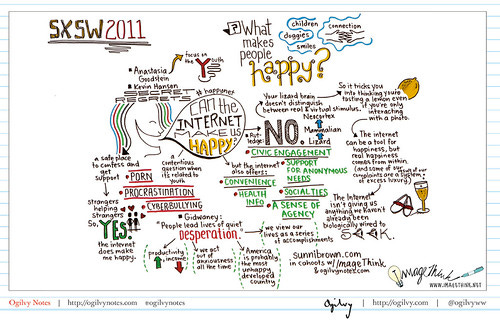 SXSW2011
? What
makes
people
happy?
children
doggies
smiles
connection
focus on
the Youth
• Anastasia
Goodstein
• Kevin Hansen
SECRET
REGRET
& happiness
CAN THE
INTERNET
MAKE US
HAPPY?
Your lizard brain
doesn't distinguish
between real & virtual stimulus.
So it tricks you
into thinking you're
tasting a lemon even
if you're only
interacting
with a photo.
Neocortex
Mammalian
Lizard
• Rut-
ledge:
NO.
• The internet
can be a tool for
happiness, but real
happiness comes
from within
(and some of our
complaints are a result of
a system
of excess luxury.)
a safe place
to confess and
get support
a contentious
question when
it's related to
youth.
• PORN
• PROCRASTINATION
• CYBERBULLYING
• CIVIC ENGAGEMENT
• but the internet
also offers:
• SUPPORT
FOR ANONYMOUS
NEEDS
• CONVENIENCE
• HEALTH
INFO
• SOCIALTIES
• A SENSE OF
AGENCY
strangers
helping
strangers
So, YES!
the internet
does make
me happy.
The Internet
isn't giving us
anything we haven't
already been
biologically wired to
SEEK.
• Gidwaney:
People lead lives of quiet
desperation.
we view our
lives as a series
of accomplishments
productivity
& income
we act
out of
anxiousness
all the time
America is
probably the
most unhappy
developed
country
sunnibrown.com
in cahoots w/ImageThink
& ogilvynotes.com
ImageThink
WWW.IMAGETHINK.NET
Ogilvy Notes | http://ogilvynotes.com #ogilvynotes
Ogilvy | http://ogilvy.com | @ogilvyww